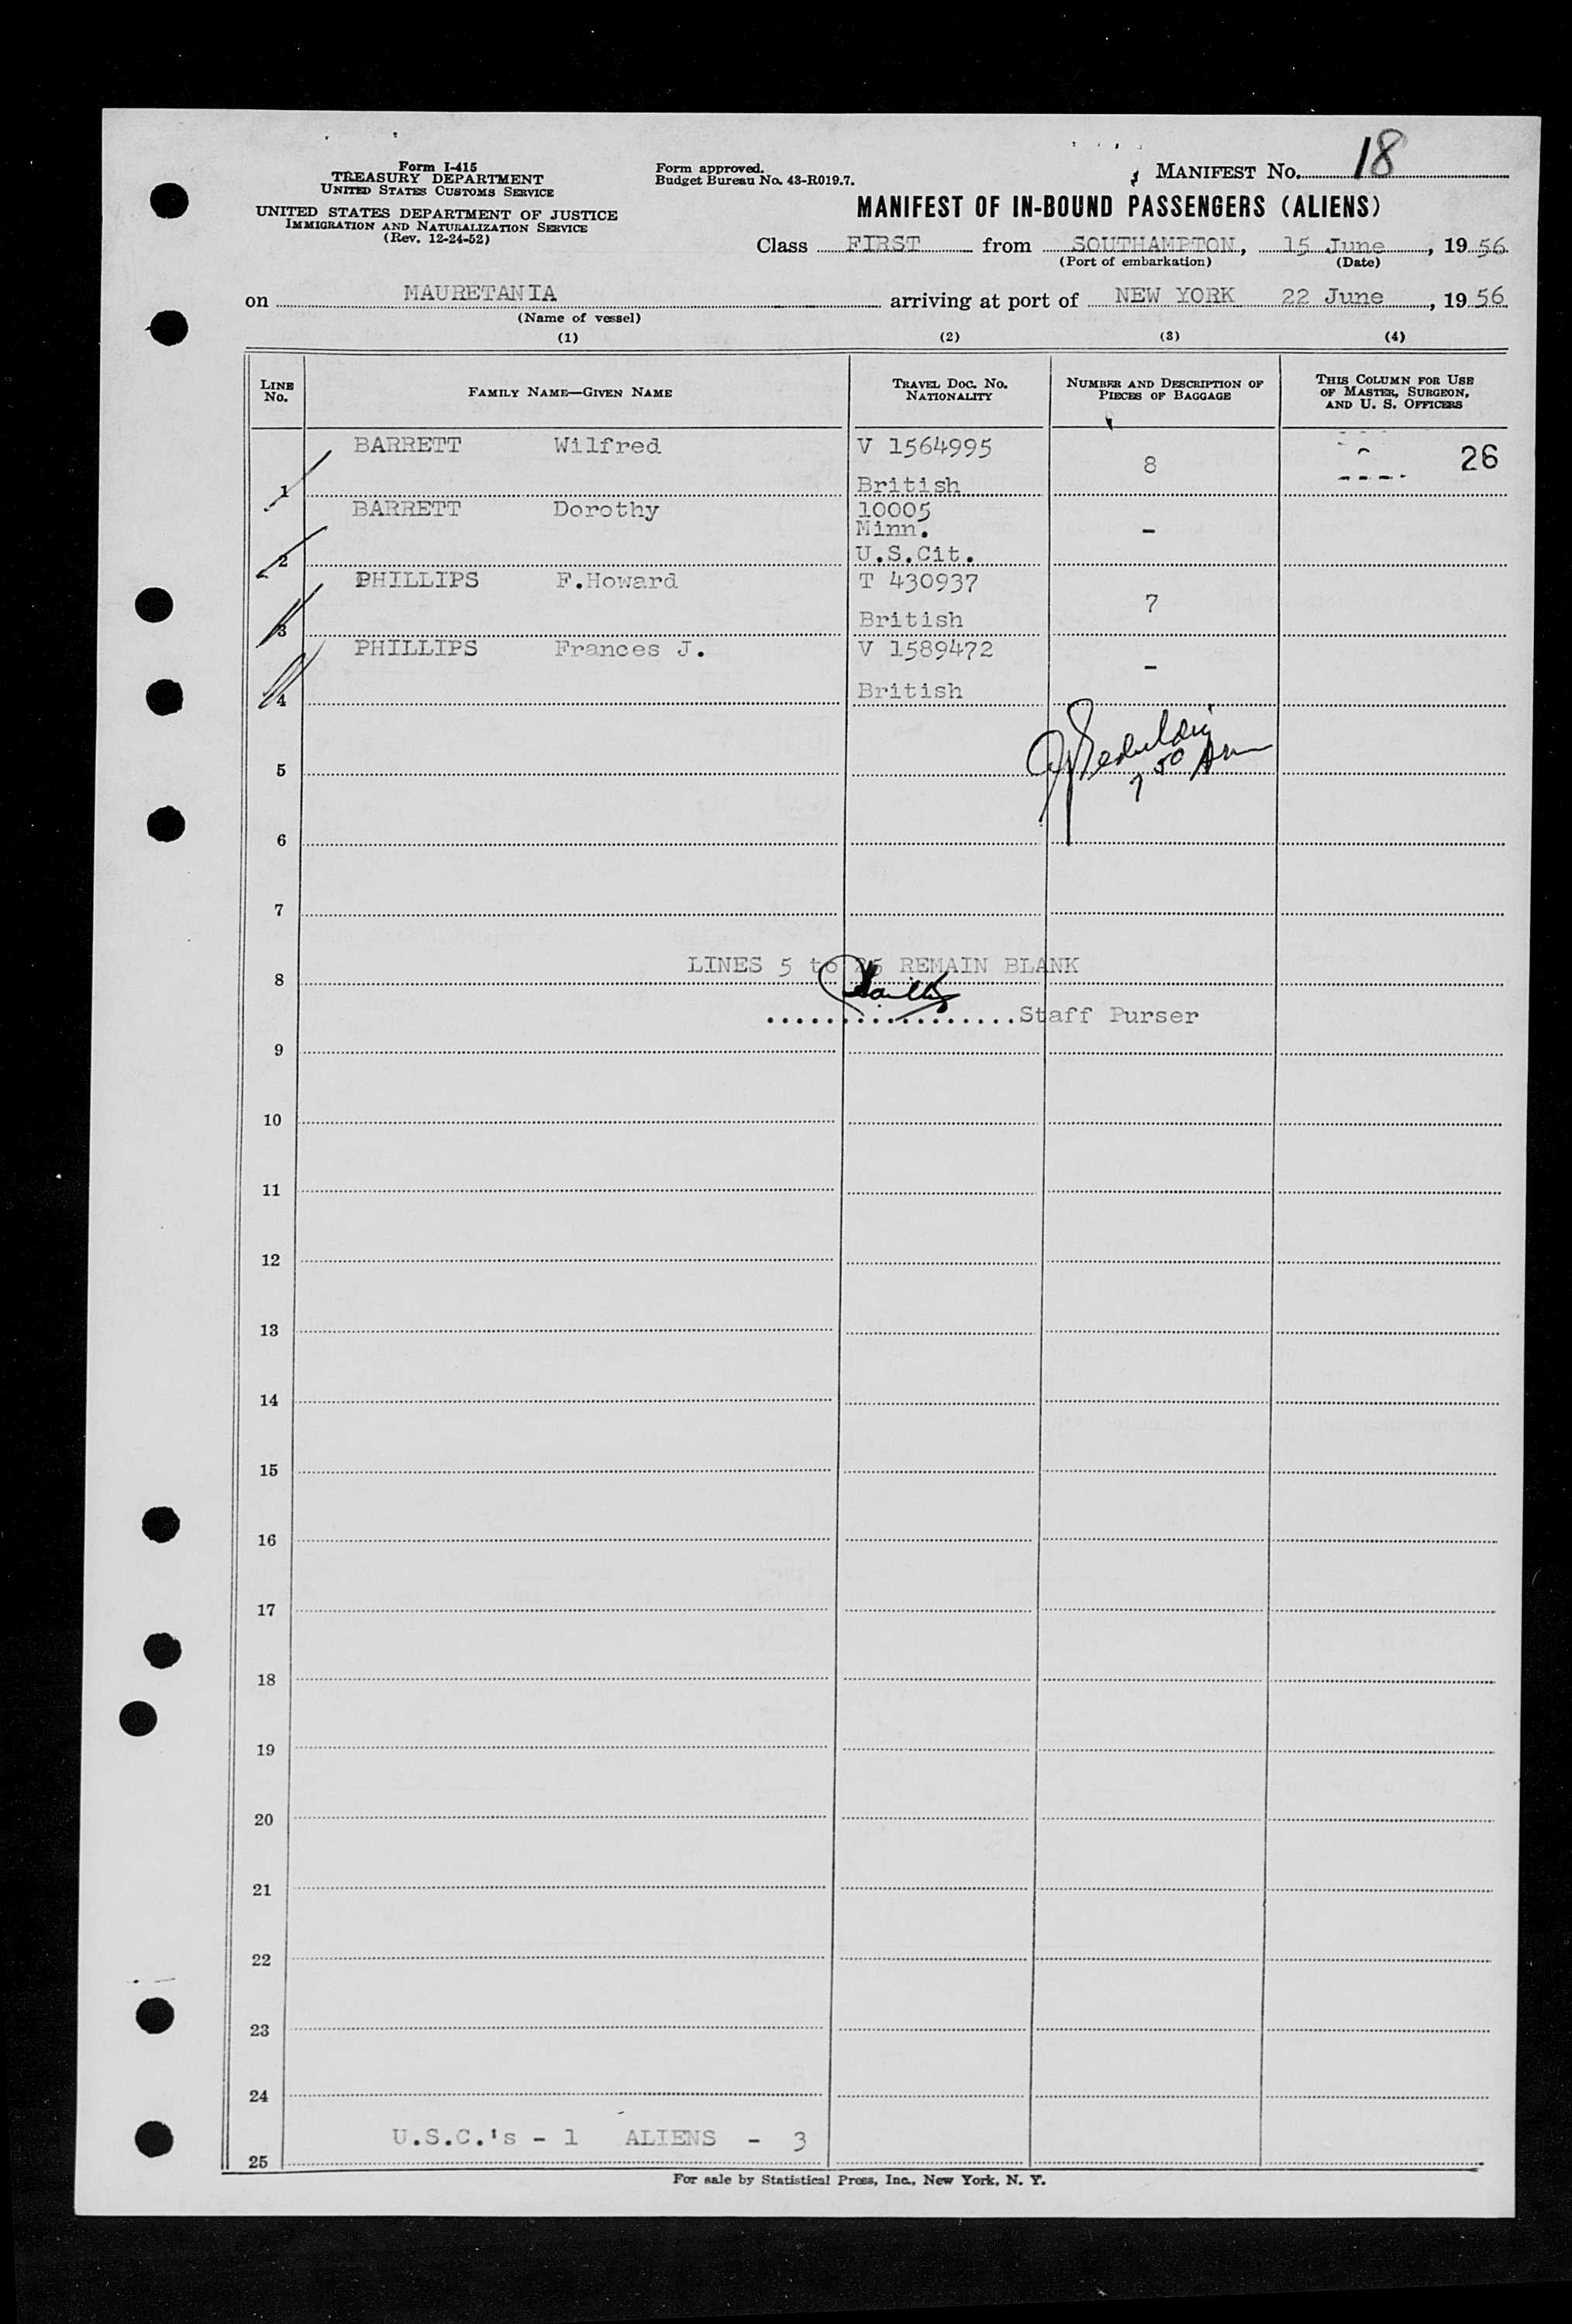 Form I-415
TREASURY DEPARTMENT
UNITED STATES CUSTOMS SERVICE
UNITED STATES DEPARTMENT OF JUSTICE
IMMIGRATION AND NATURALIZATION SERVICE
(Rev. 12-24-52)
Form approved.
Budget Bureau No. 43-R019.7.
MANIFEST No. 18
MANIFEST OF IN-BOUND PASSENGERS (ALIENS)
Class FIRST from SOUTHAMPTON, 15 June, 1956
(Port of embarkation) (Date)
on MAURETANIA arriving at port of NEW YORK 22 June, 1956
(Name of vessel)
(1) (2) (3) (4)
LINE No. FAMILY NAME—GIVEN NAME TRAVEL DOC. No. NATIONALITY NUMBER AND DESCRIPTION OF PIECES OF BAGGAGE THIS COLUMN FOR USE OF MASTER, SURGEON, AND U. S. OFFICERS
BARRETT Wilfred V 1564995
8 26
1 British
BARRETT Dorothy 10005
Minn. –
2 U.S.Cit.
PHILLIPS F.Howard T 430937
7
3 British
PHILLIPS Frances J. V 1589472
–
4 British
5
7 50 Am
6
7
LINES 5 to 25 REMAIN BLANK
8
.................Staff Purser
9
10
11
12
13
14
15
16
17
18
19
20
21
22
23
24
U.S.C.'s - 1 ALIENS - 3
25
For sale by Statistical Press, Inc., New York, N. Y.